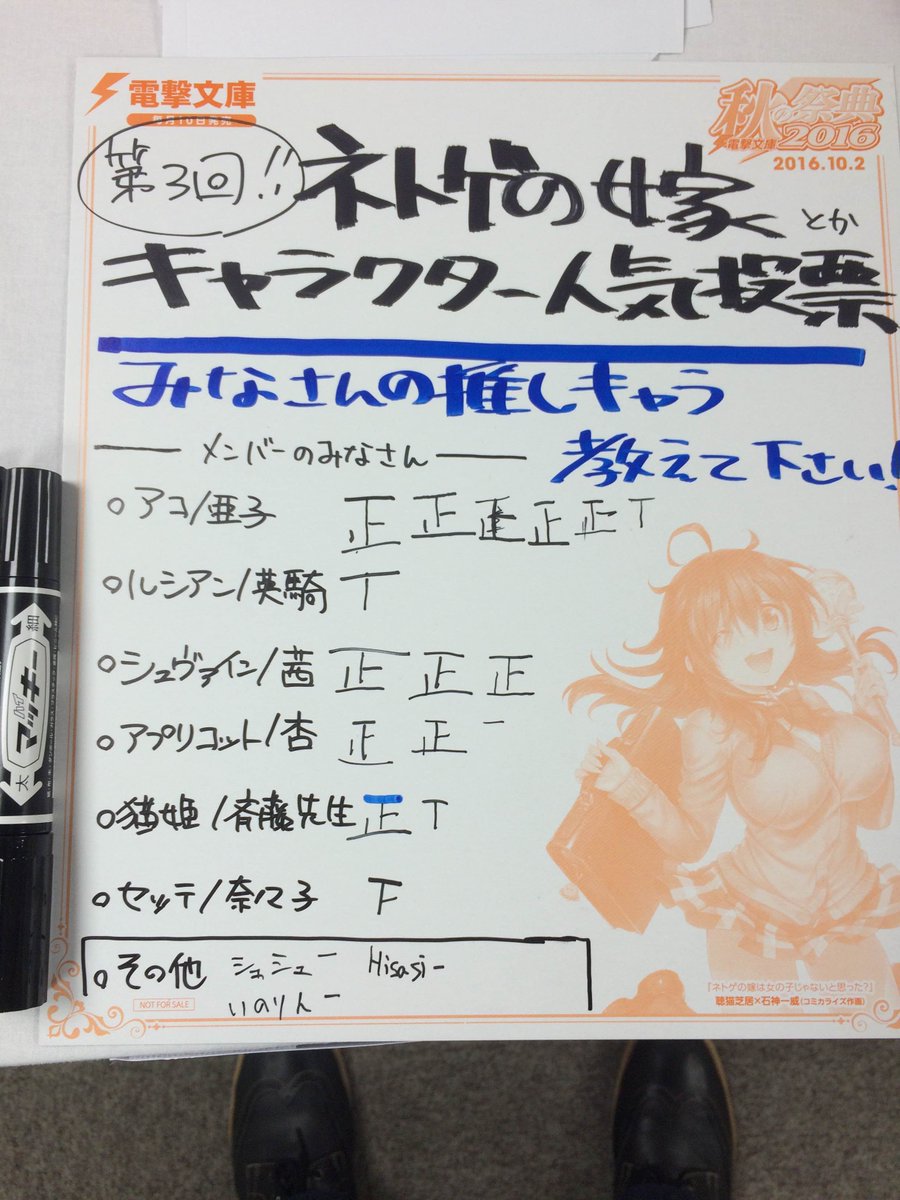 電撃文庫
毎月10日発売
秋の祭典
電撃文庫 2016
2016.10.2
第3回!!
ネトゲの嫁とか
キャラクター人気投票
みなさんの推しキャラ
教えて下さい!
メンバーのみなさん
アコ/亜子 正 正 正 正 正 T
ルシアン/英騎 T
シュヴァイン/茜 正 正 正
アプリコット/杏 正 正 一
猫姫/斉藤先生 正 T
セッテ/奈々子 下
その他 シュシュ 一 Hisasi 一
いのりん 一
NOT FOR SALE
『ネトゲの嫁は女の子じゃないと思った?』
聴猫芝居×石神一威(コミカライズ作画)
太 マッキー 細